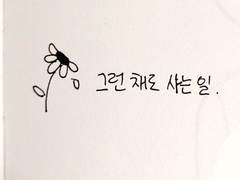 그런 채로 사는 일.